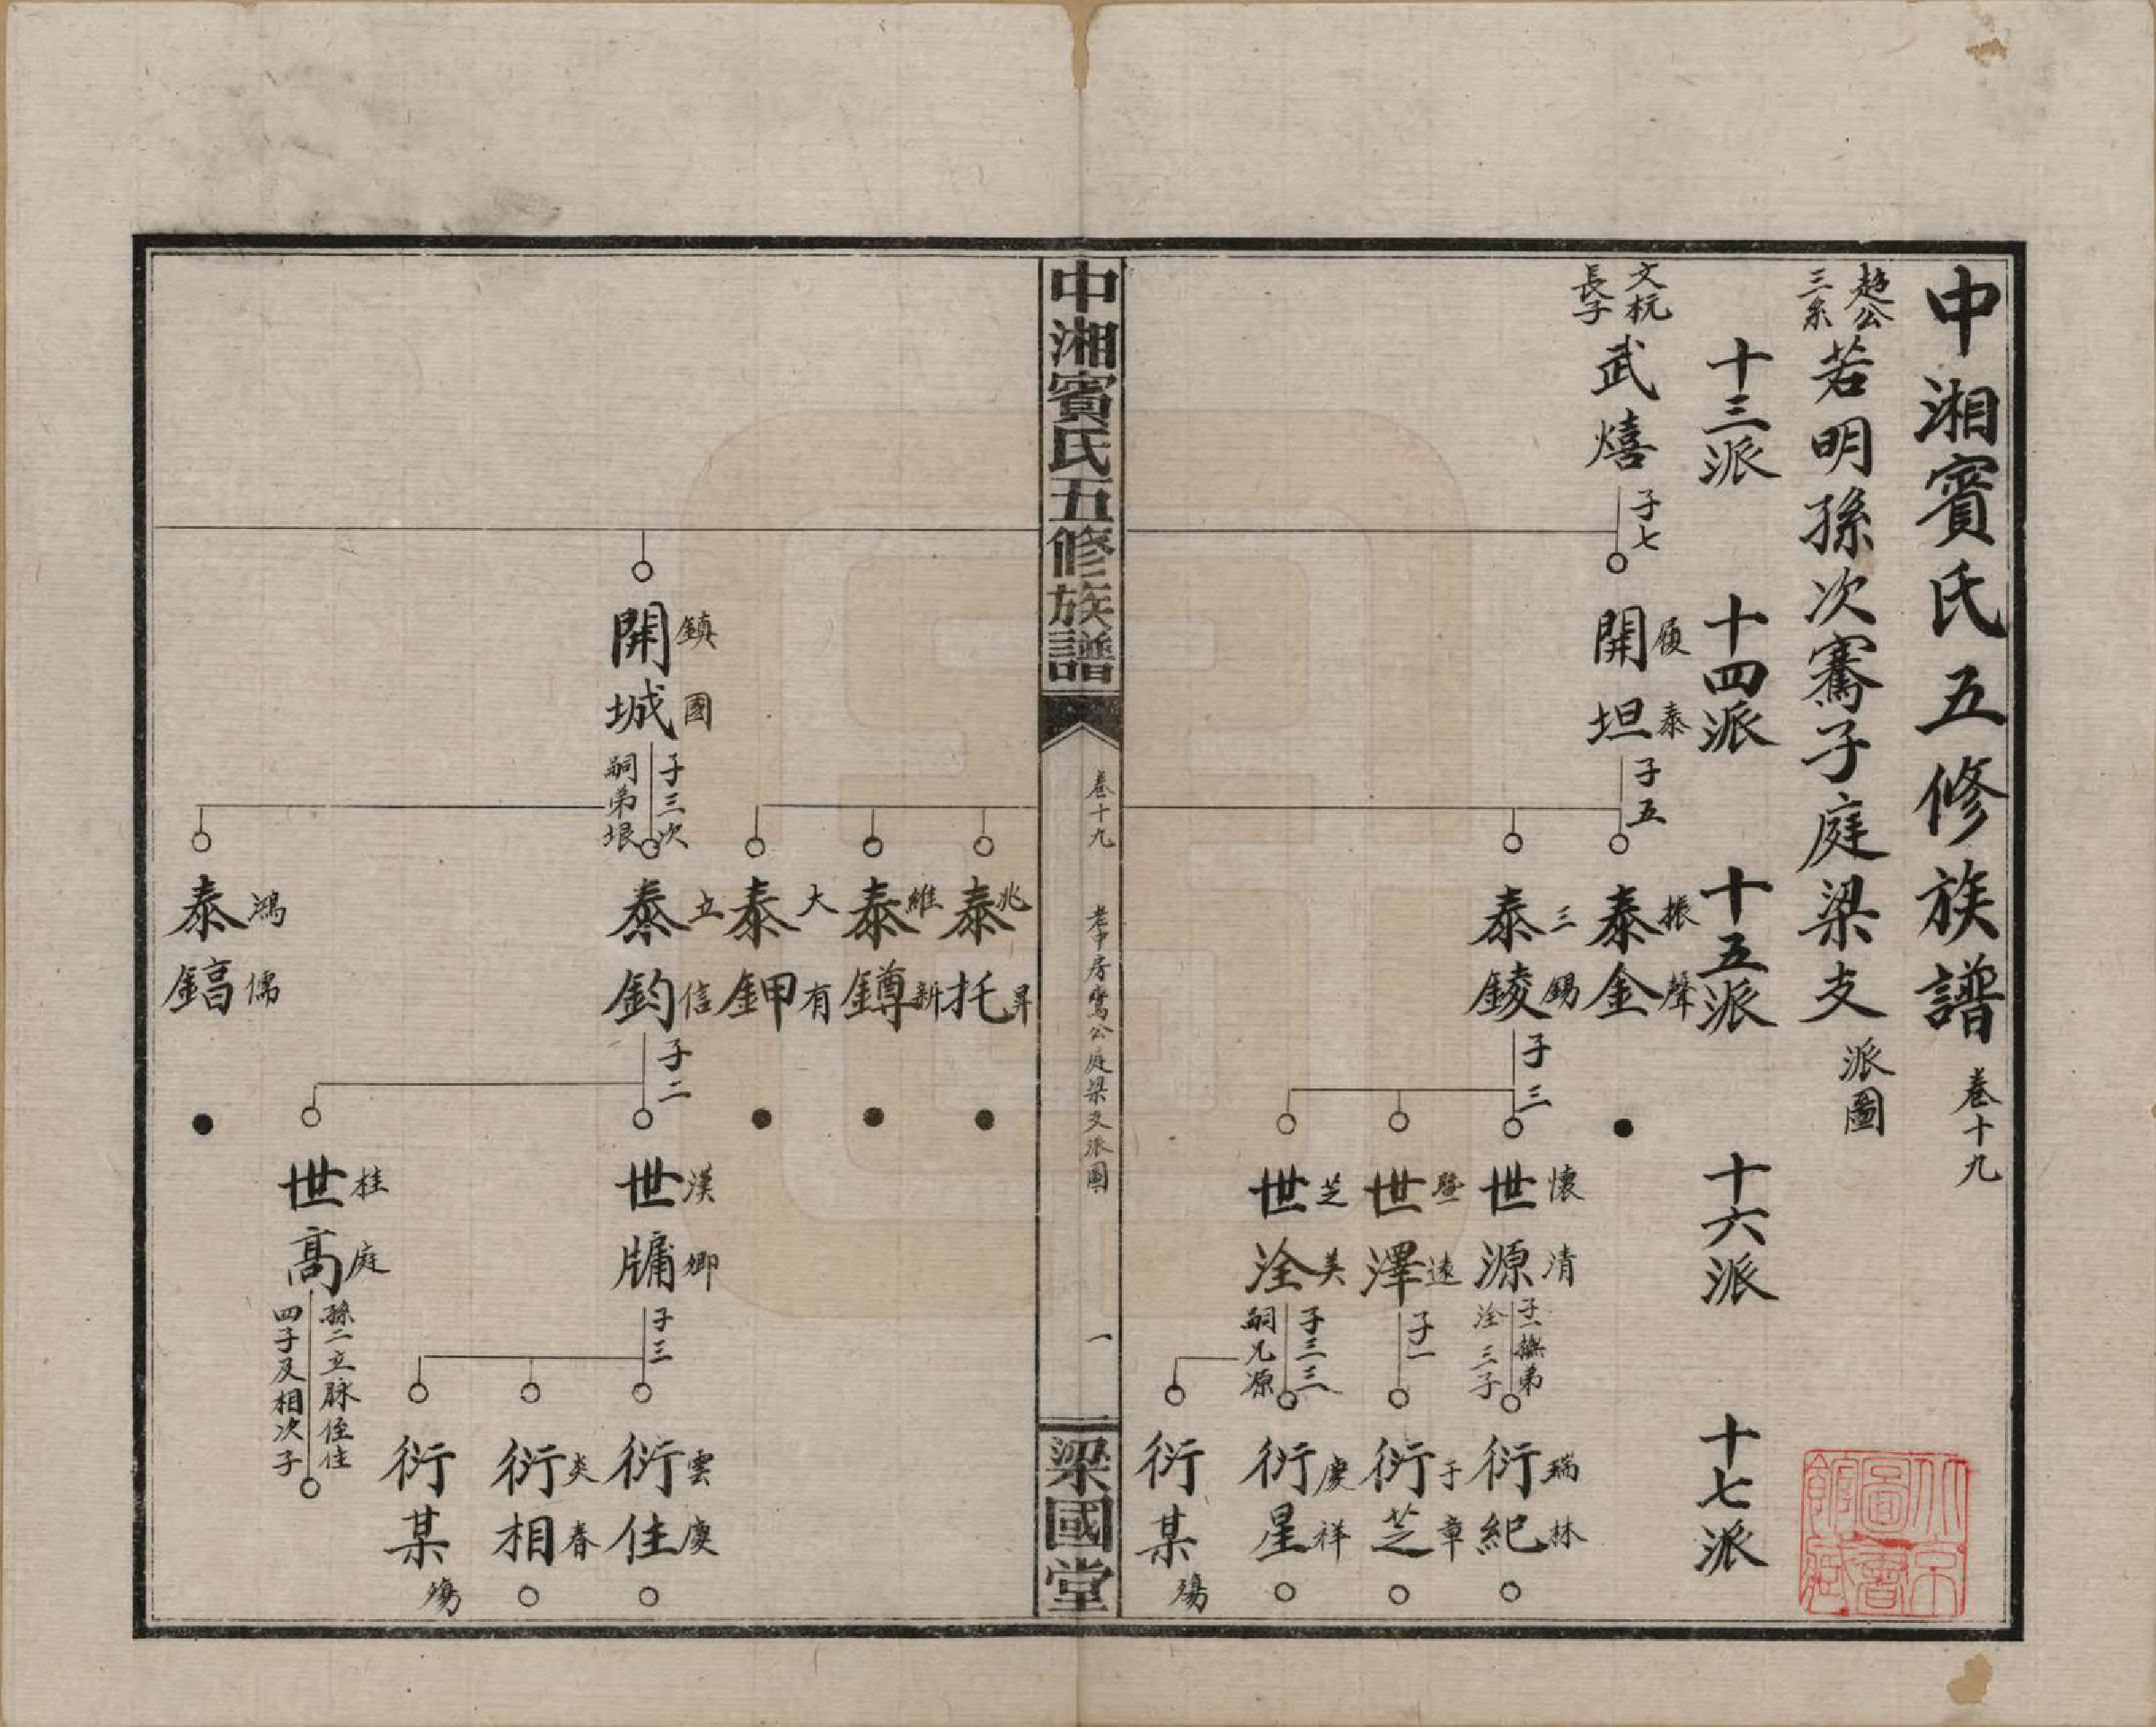 中湘賓氏五修族譜 卷十九
趂公三系 若明孫次騫子庭梁支 派圖
十三派 十四派 十五派 十六派 十七派
文杬長子 武熺 子七
開坦 履泰 子五
泰金 振聲
泰錂 三錫 子三
世源 懷清 子一撫弟淦三子
衍紀 瑞林
世澤 子一
衍芝 于章
世淦 芝美 子三三嗣兄源
衍星 慶祥
衍某 殤
中湘賓氏五修族譜
卷十九 庭梁支派圖 一
梁國堂
泰托 兆昇
泰鐏 維新
泰鉀 大有
開城 鎮國 子三次嗣弟垠
泰鈞 立信 子二
世牗 漢卿 子三
衍住 雲慶
衍相 炎春
衍某 殤
世高 桂庭 孫二立脉侄住四子及相次子
泰鎬 鴻儒
北京圖書館藏